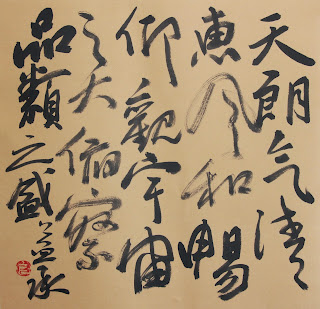 天朗气清
惠风和畅
仰观宇宙
之大俯察
品類之盛